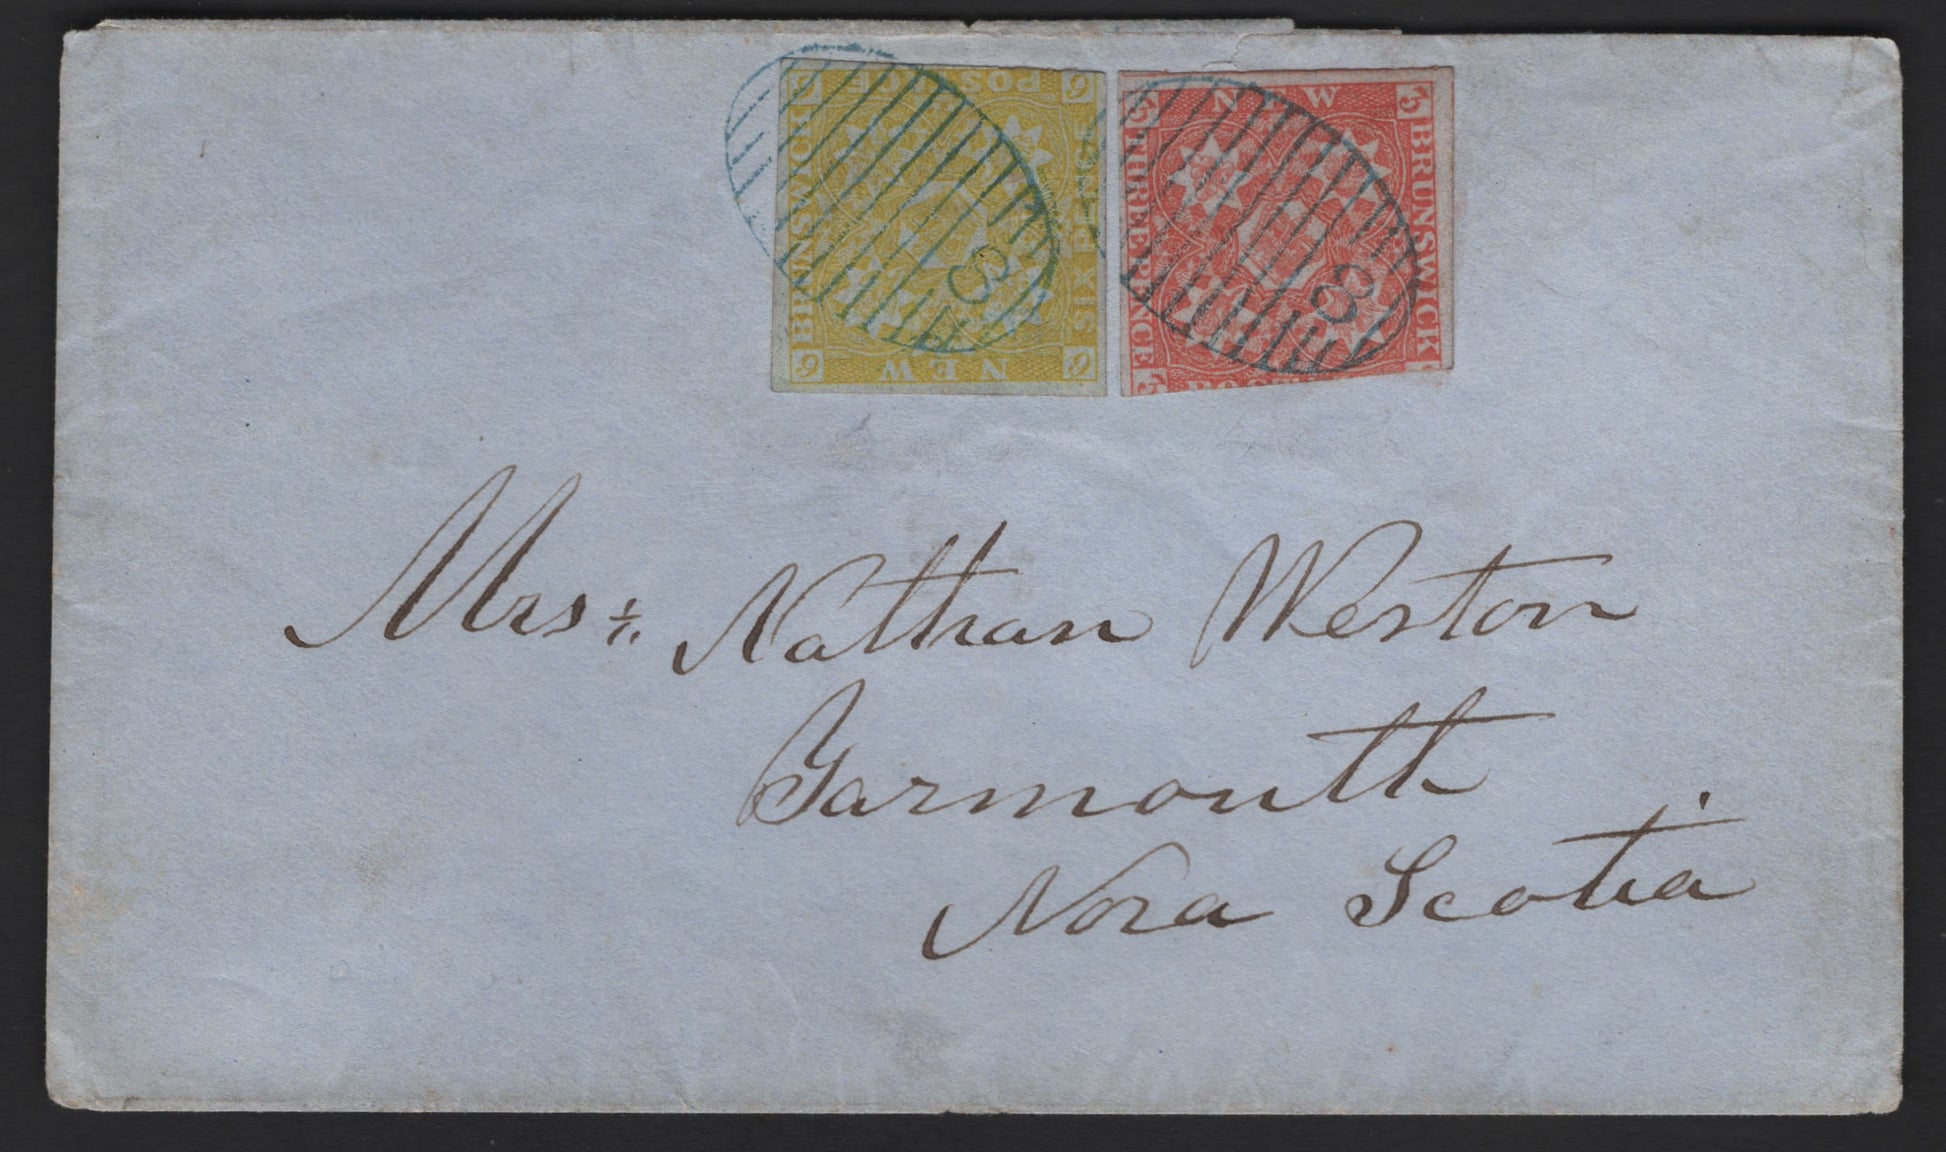 NEW BRUNSWICK SIX PENCE POSTAGE
6 6 6 6
8
NEW BRUNSWICK THREE PENCE
3 3 3
8
Mrs. Nathan Weston
Yarmouth
Nova Scotia